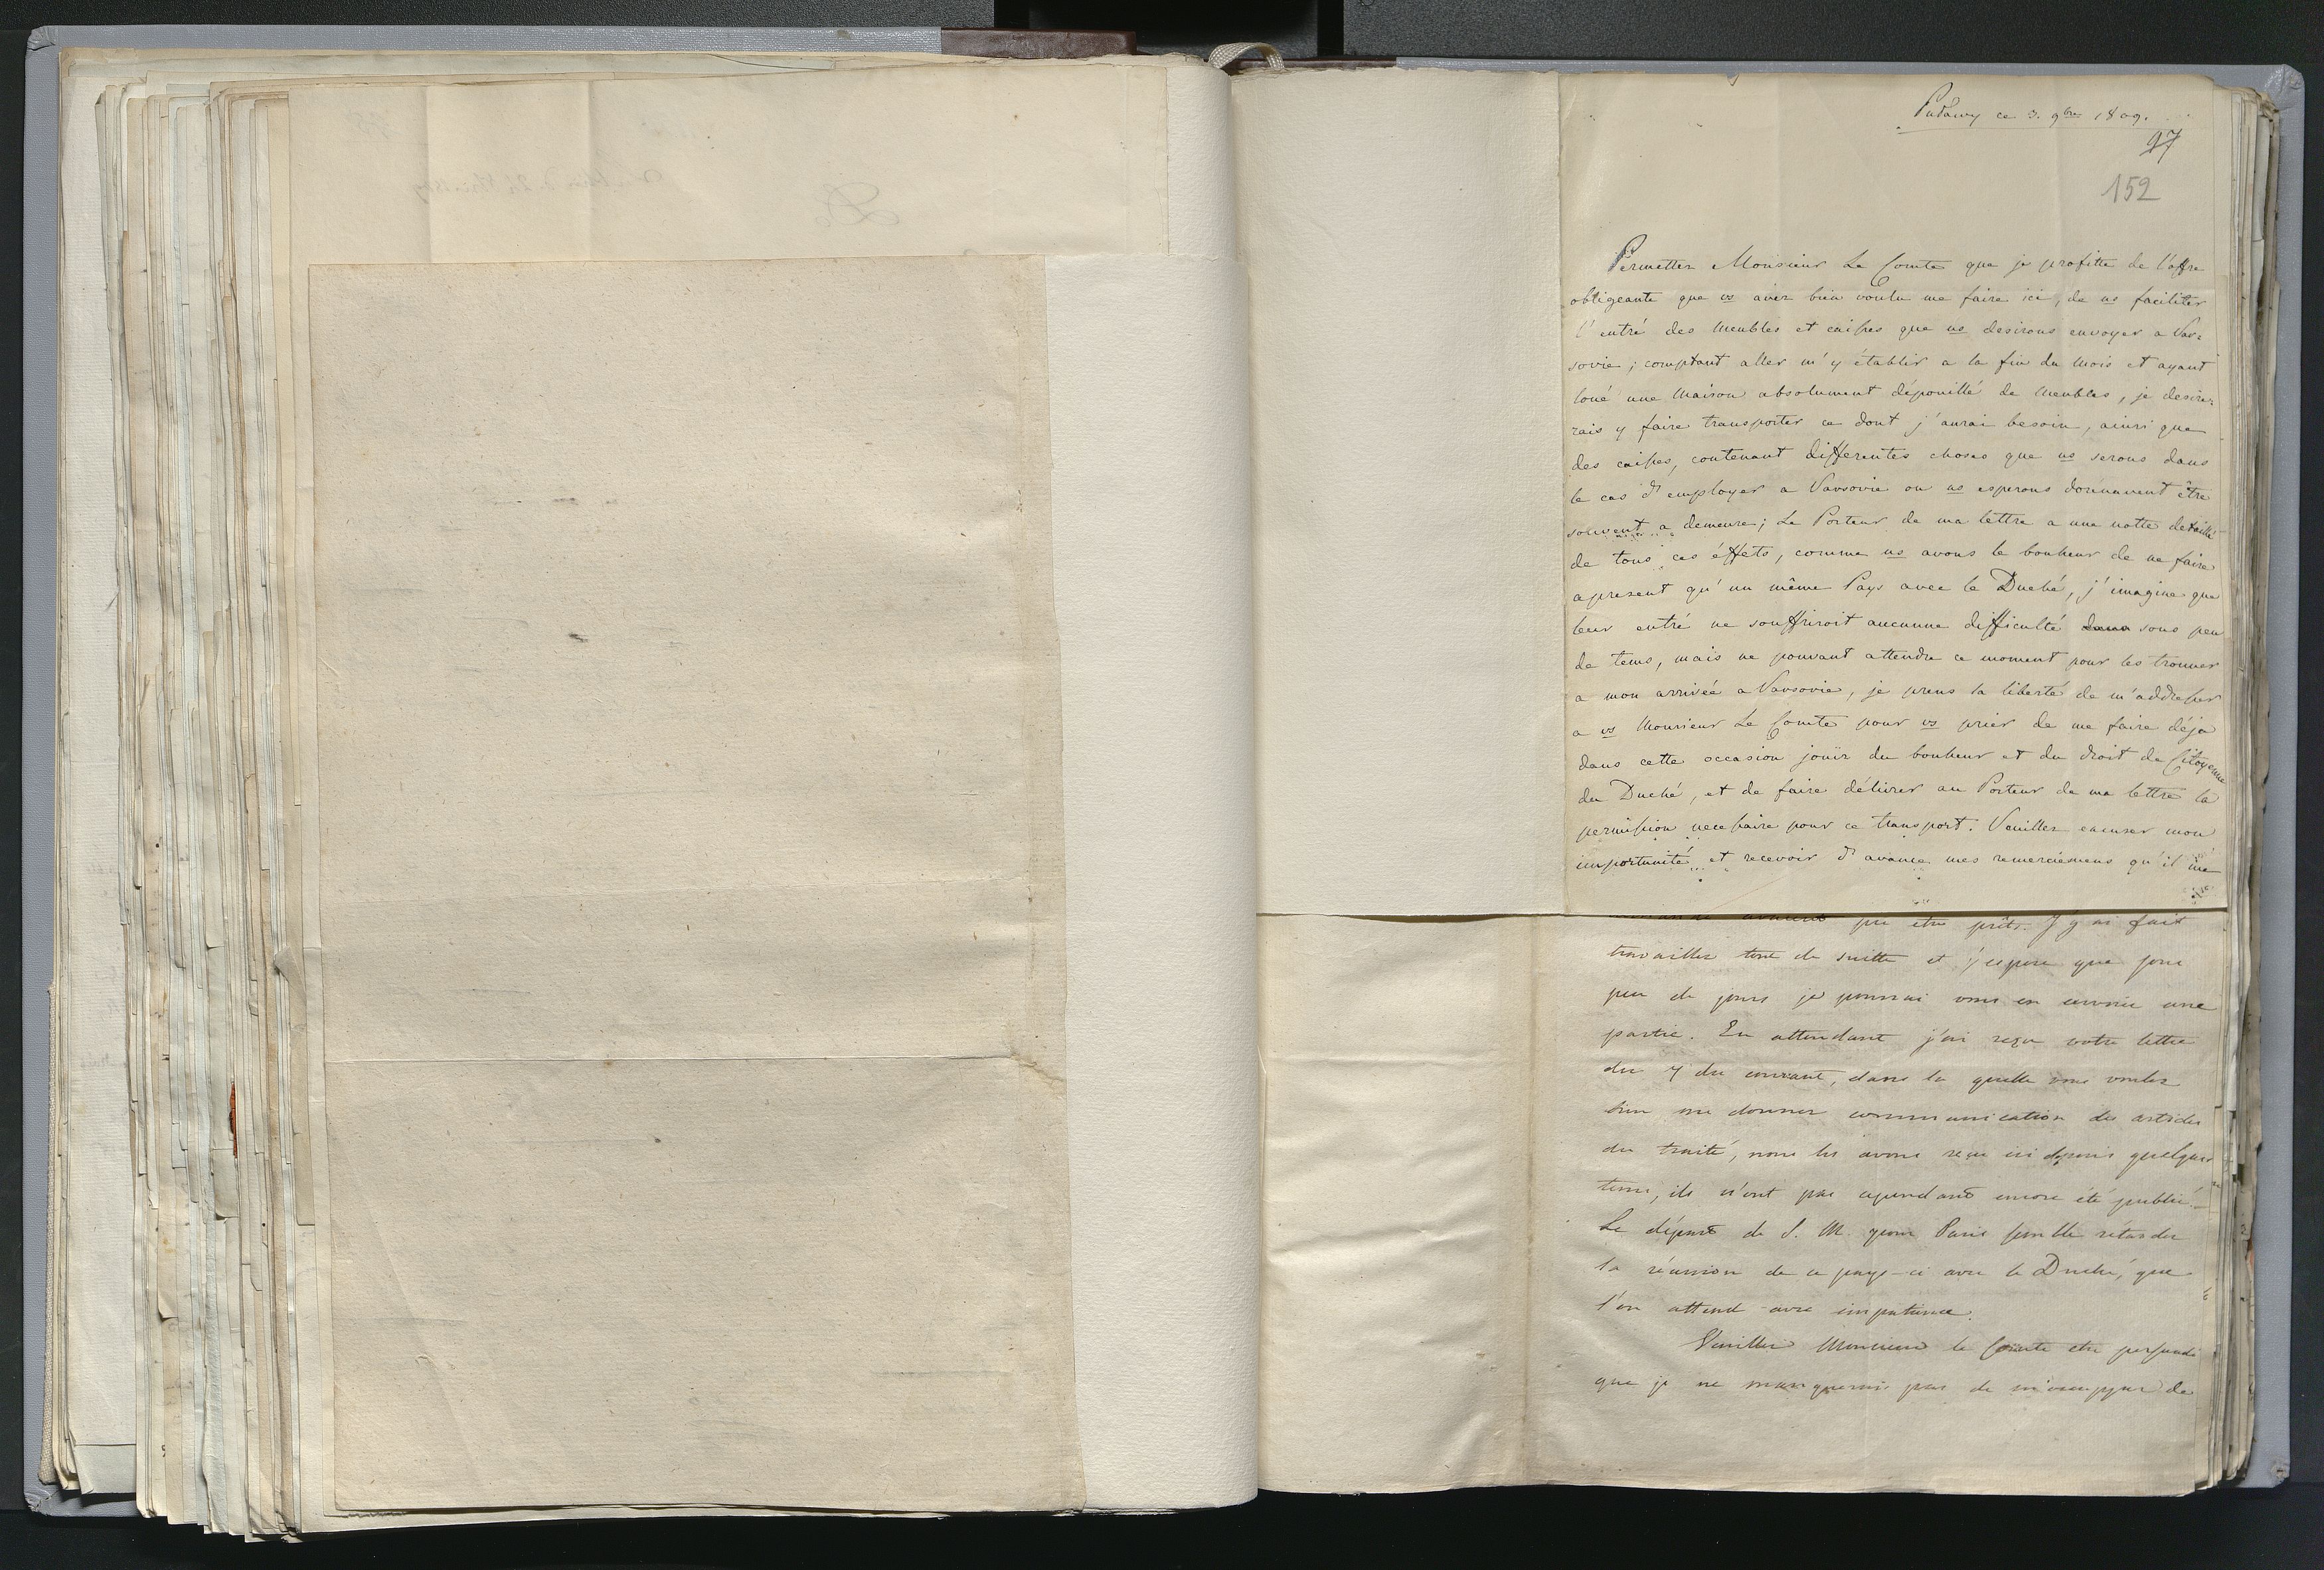 Puławy ce 3. 9bre 1809.
97
152
Permettez Monsieur Le Comte que je profitte de l'offre
obligeante que vs avez bien voulu me faire ici, de ns faciliter
l'entré des Meubles et caisses que ns desirons envoyer a Var=
sovie; comptant aller m'y établir a la fin du Mois et ayant
loué une Maison absolument dépouillé de Meubles, je desire=
rais y faire transporter ce dont j'aurai besoin, ainsi que
des caisses, contenant differentes choses que ns serons dans
le cas d'employer a Varsovie ou ns esperons dorenavent être
souvent a demeure; Le Porteur de ma lettre a une notte detaillé
de tous ces éffets, comme ns avons le bonheur de ne faire
apresent qu'un même Pays avec le Duché, j'imagine que
leur entré ne souffriroit aucunne difficulté sous peu
de tems, mais ne pouvant attendre ce moment pour les trouver
a mon arrivée a Varsovie, je prens la liberté de m'addresser
a vs Monsieur Le Comte pour vs prier de me faire déja
dans cette occasion jouïr du bonheur et du droit de Citoyenne
du Duché, et de faire délivrer au Porteur de ma lettre la
permission necessaire pour ce transport. Veuillez excuser mon
importunité et recevoir d'avance mes remerciemens qu'il me
pu etre prêts. J'y ai fait
travailler tout de suitte et j'espere que sous
peu de jours je pourrai vous en envoier une
partie. En attendant j'ai reçu votre lettre
du 7 du courant, dans la quelle vous voulez
bien me donner communication des articles
du traité, nous les avons reçu ici depuis quelques
tems, ils n'ont pas cependant encore été publié.
Le départ de S. M. pour Paris semble rétarder
la réunion de ce pays-ci avec le Duché, que
l'on attend avec impatience.
Veuillez Monsieur le Comte etre persuadé
que je ne manquerai pas de m'occupper de